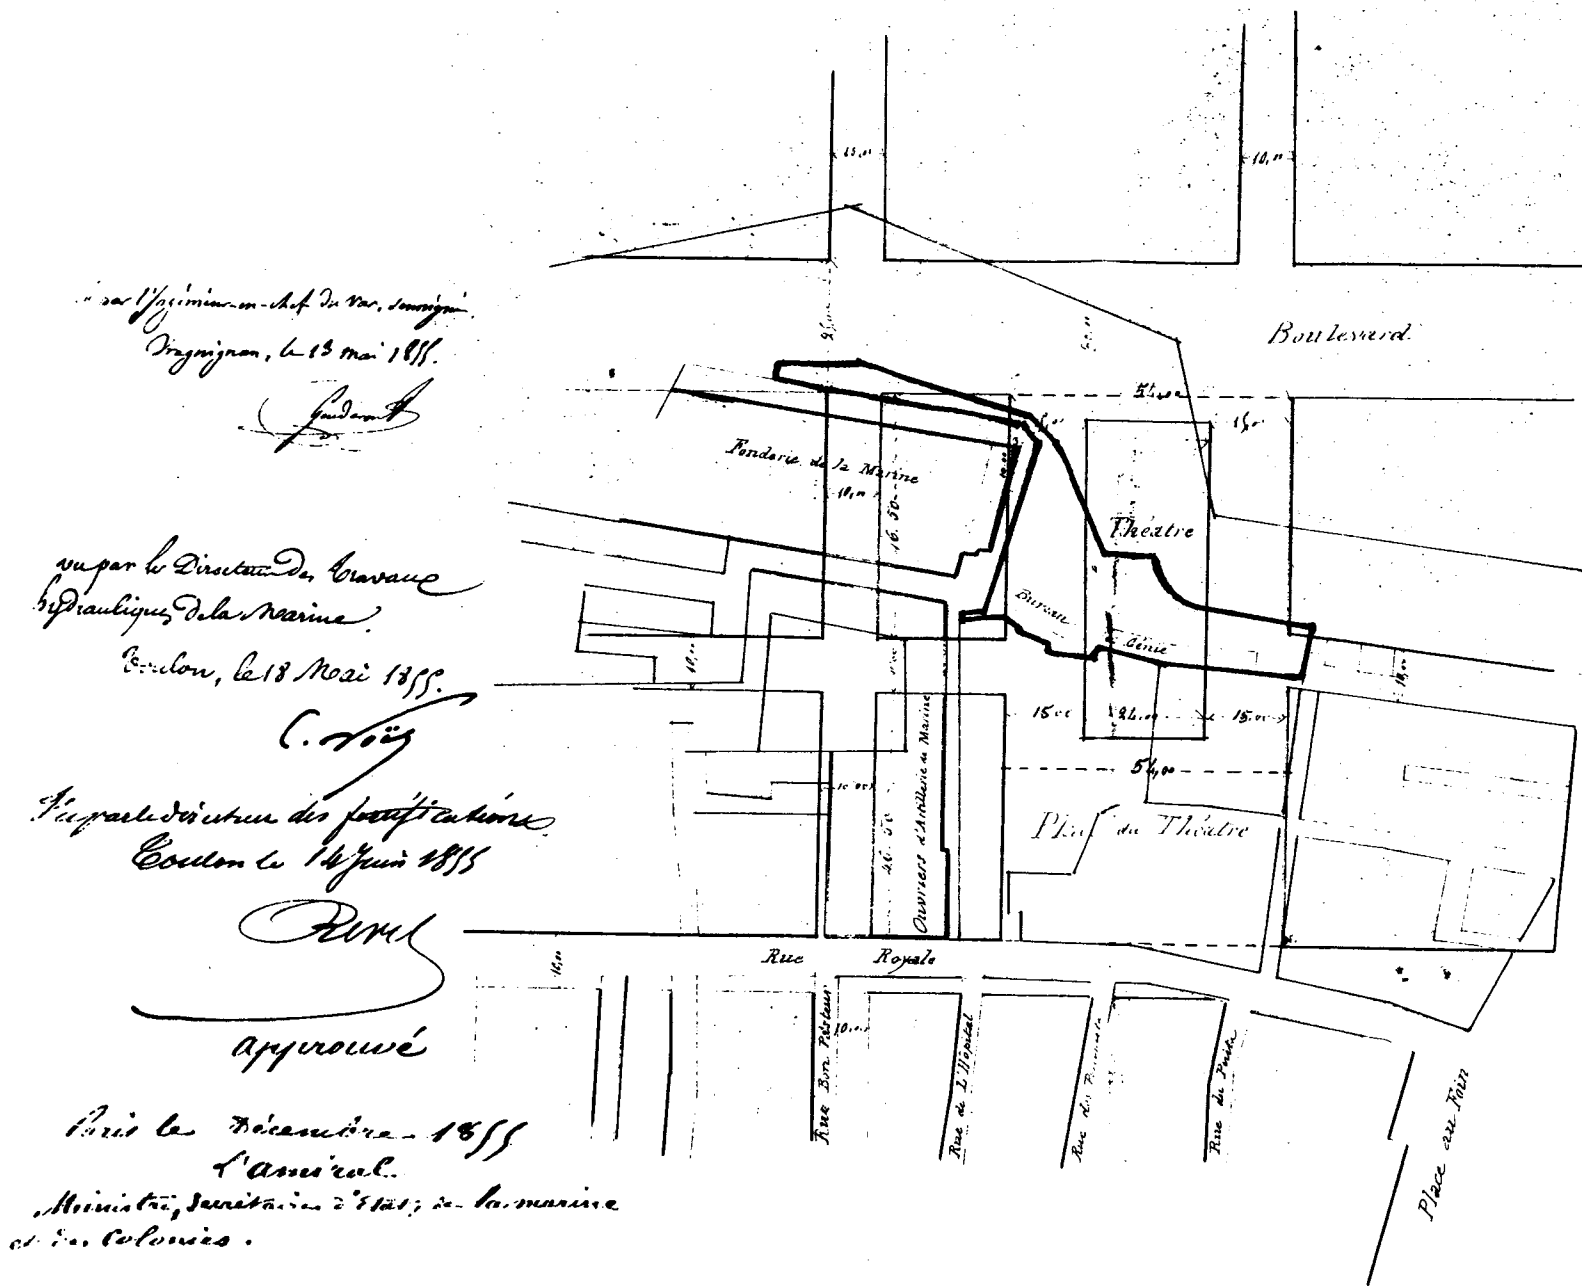 par l'Ingénieur-en-chef du Var, soussigné.
Draguignan, le 13 mai 1855.
vu par le Directeur des travaux
hydrauliques de la Marine
Toulon, le 18 Mai 1855.
C. Noël
Vu par le directeur des fortifications
Toulon le 14 Juin 1855
approuvé
Paris le Décembre 1855
L'amiral
Ministre, Secrétaire d'État, de la marine
et des Colonies.
15,00
10,00
Boulevard
54,00
15,00
Fonderie de la Marine
10,00
46.50
Théâtre
Bureau
Génie
10,00
10,00
15,00
24,00
15,00
54,00
10,00
46.50
Ouvriers d'Artillerie de Marine
Place du Théâtre
Rue Royale
10,00
Rue Bon Pasteur
10,00
Rue de L'Hôpital
Rue des
Rue du
Place au Foin